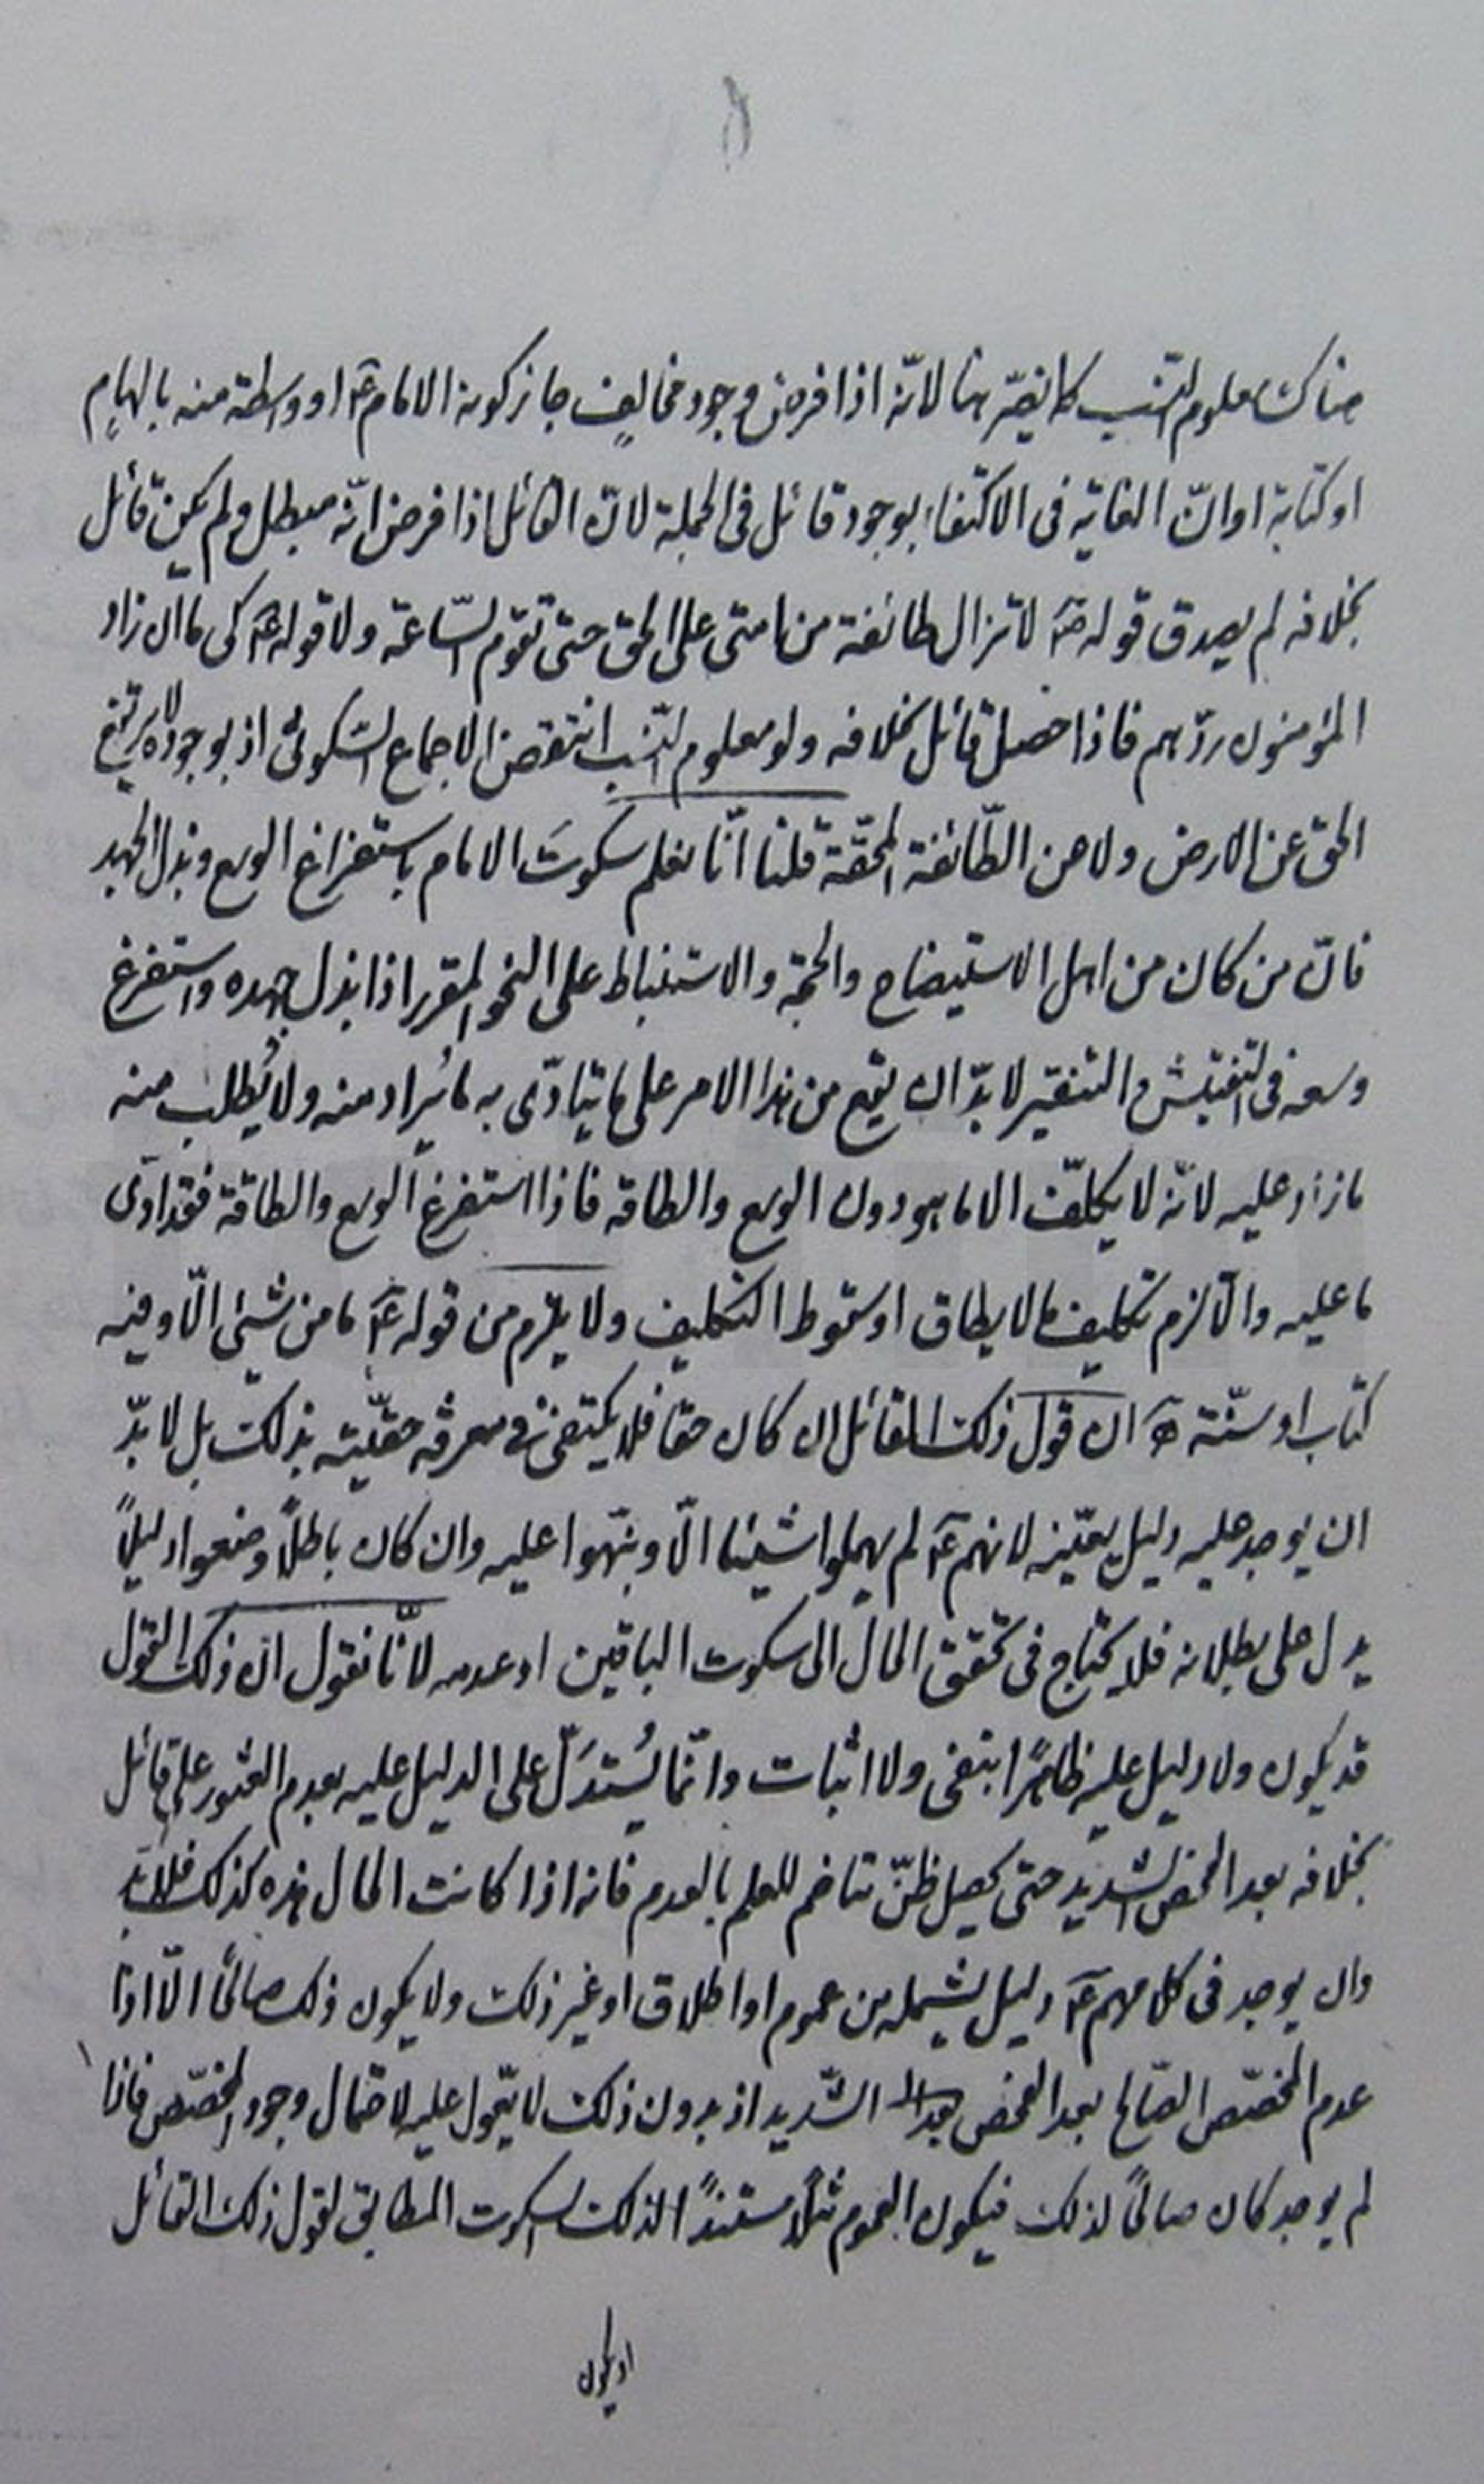 هناك معلوم النسب كما يضرّ هنا لانّه اذا فرض وجود مخالفٍ جاز كونه الامام ع او واسطة منه بالهامٍ
او كتابة او انّ الغاية فى الاكتفاء بوجود قائل فى الجملة لانّ القائل اذا فرض انّه مبطل ولم يكن قائل
بخلافه لم يصدق قوله ص لا تزال طائفة من امتى على الحق حتى تقوم السّاعة ولا قوله ع كى ما ان زاد
المؤمنون ردّهم فاذا حصل قائل بخلافه ولو معلوم النّسب انتقض الاجماع السّكوتى اذ بوجوده لا يرتفع
الحق عن الارض ولا عن الطّائفة المحقّة قلنا انّا نعلم سكوتَ الامام باستفراغ الوسع وبذل الجهد
فانّ من كان من اهل الاستيضاح والحجّة والاستنباط على النحو المقرر اذا بذل جهده واستفرغ
وسعه فى التفتيش والتنقير لا بدّ ان يقع من هذا الامر على ما يتادّى به ما يُراد منه ولا يُطلب منه
ما زاد عليه لانّه لا يكلّف الا ما هو دون الوسع والطاقة فاذا استفرغ الوسع والطاقة فقد ادّى
ما عليه والّا لزم تكليف ما لا يطاق او سقوط التكليف ولا يلزم من قوله ع ما من شيئ الّا وفيه
كتاب او سنّة ان قول ذلك القائل ان كان حقا فلا يكتفى فى معرفة حقيّته بذلك بل لا بدّ
ان يوجد عليه دليل يعيّنه لانهم ع لم يهملوا شيئا الّا ونبّهوا عليه وان كان باطلاً وضعوا دليلاً
يدل على بطلانه فلا يحتاج فى تحقق الحال الى سكوت الباقين او عدمه لانّا نقول ان ذلك القول
قد يكون ولا دليل عليه ظاهرًا بنفى ولا اثبات وانّما يُستدَلّ على الدليل عليه بعدم العثور على قائل
بخلافه بعد الفحص الشديد حتى يحصل ظنّ متاخم للعلم بالعدم فانه اذا كانت الحال هذه كذلك فلا بدّ
وان يوجد فى كلامهم ع دليل يشمله من عموم او اطلاق او غير ذلك ولا يكون ذلك صالحًا الّا اذا
عدم المخصّص الصّالح بعد الفحص الشّديد اذ بدون ذلك لا يعوّل عليه لاحتمال وجود المخصّص فاذا
لم يوجد كان صالحًا لذلك فيكون العموم مثلاً مستندًا لذلك السكوت المطابق لقول ذلك القائل
او يكون